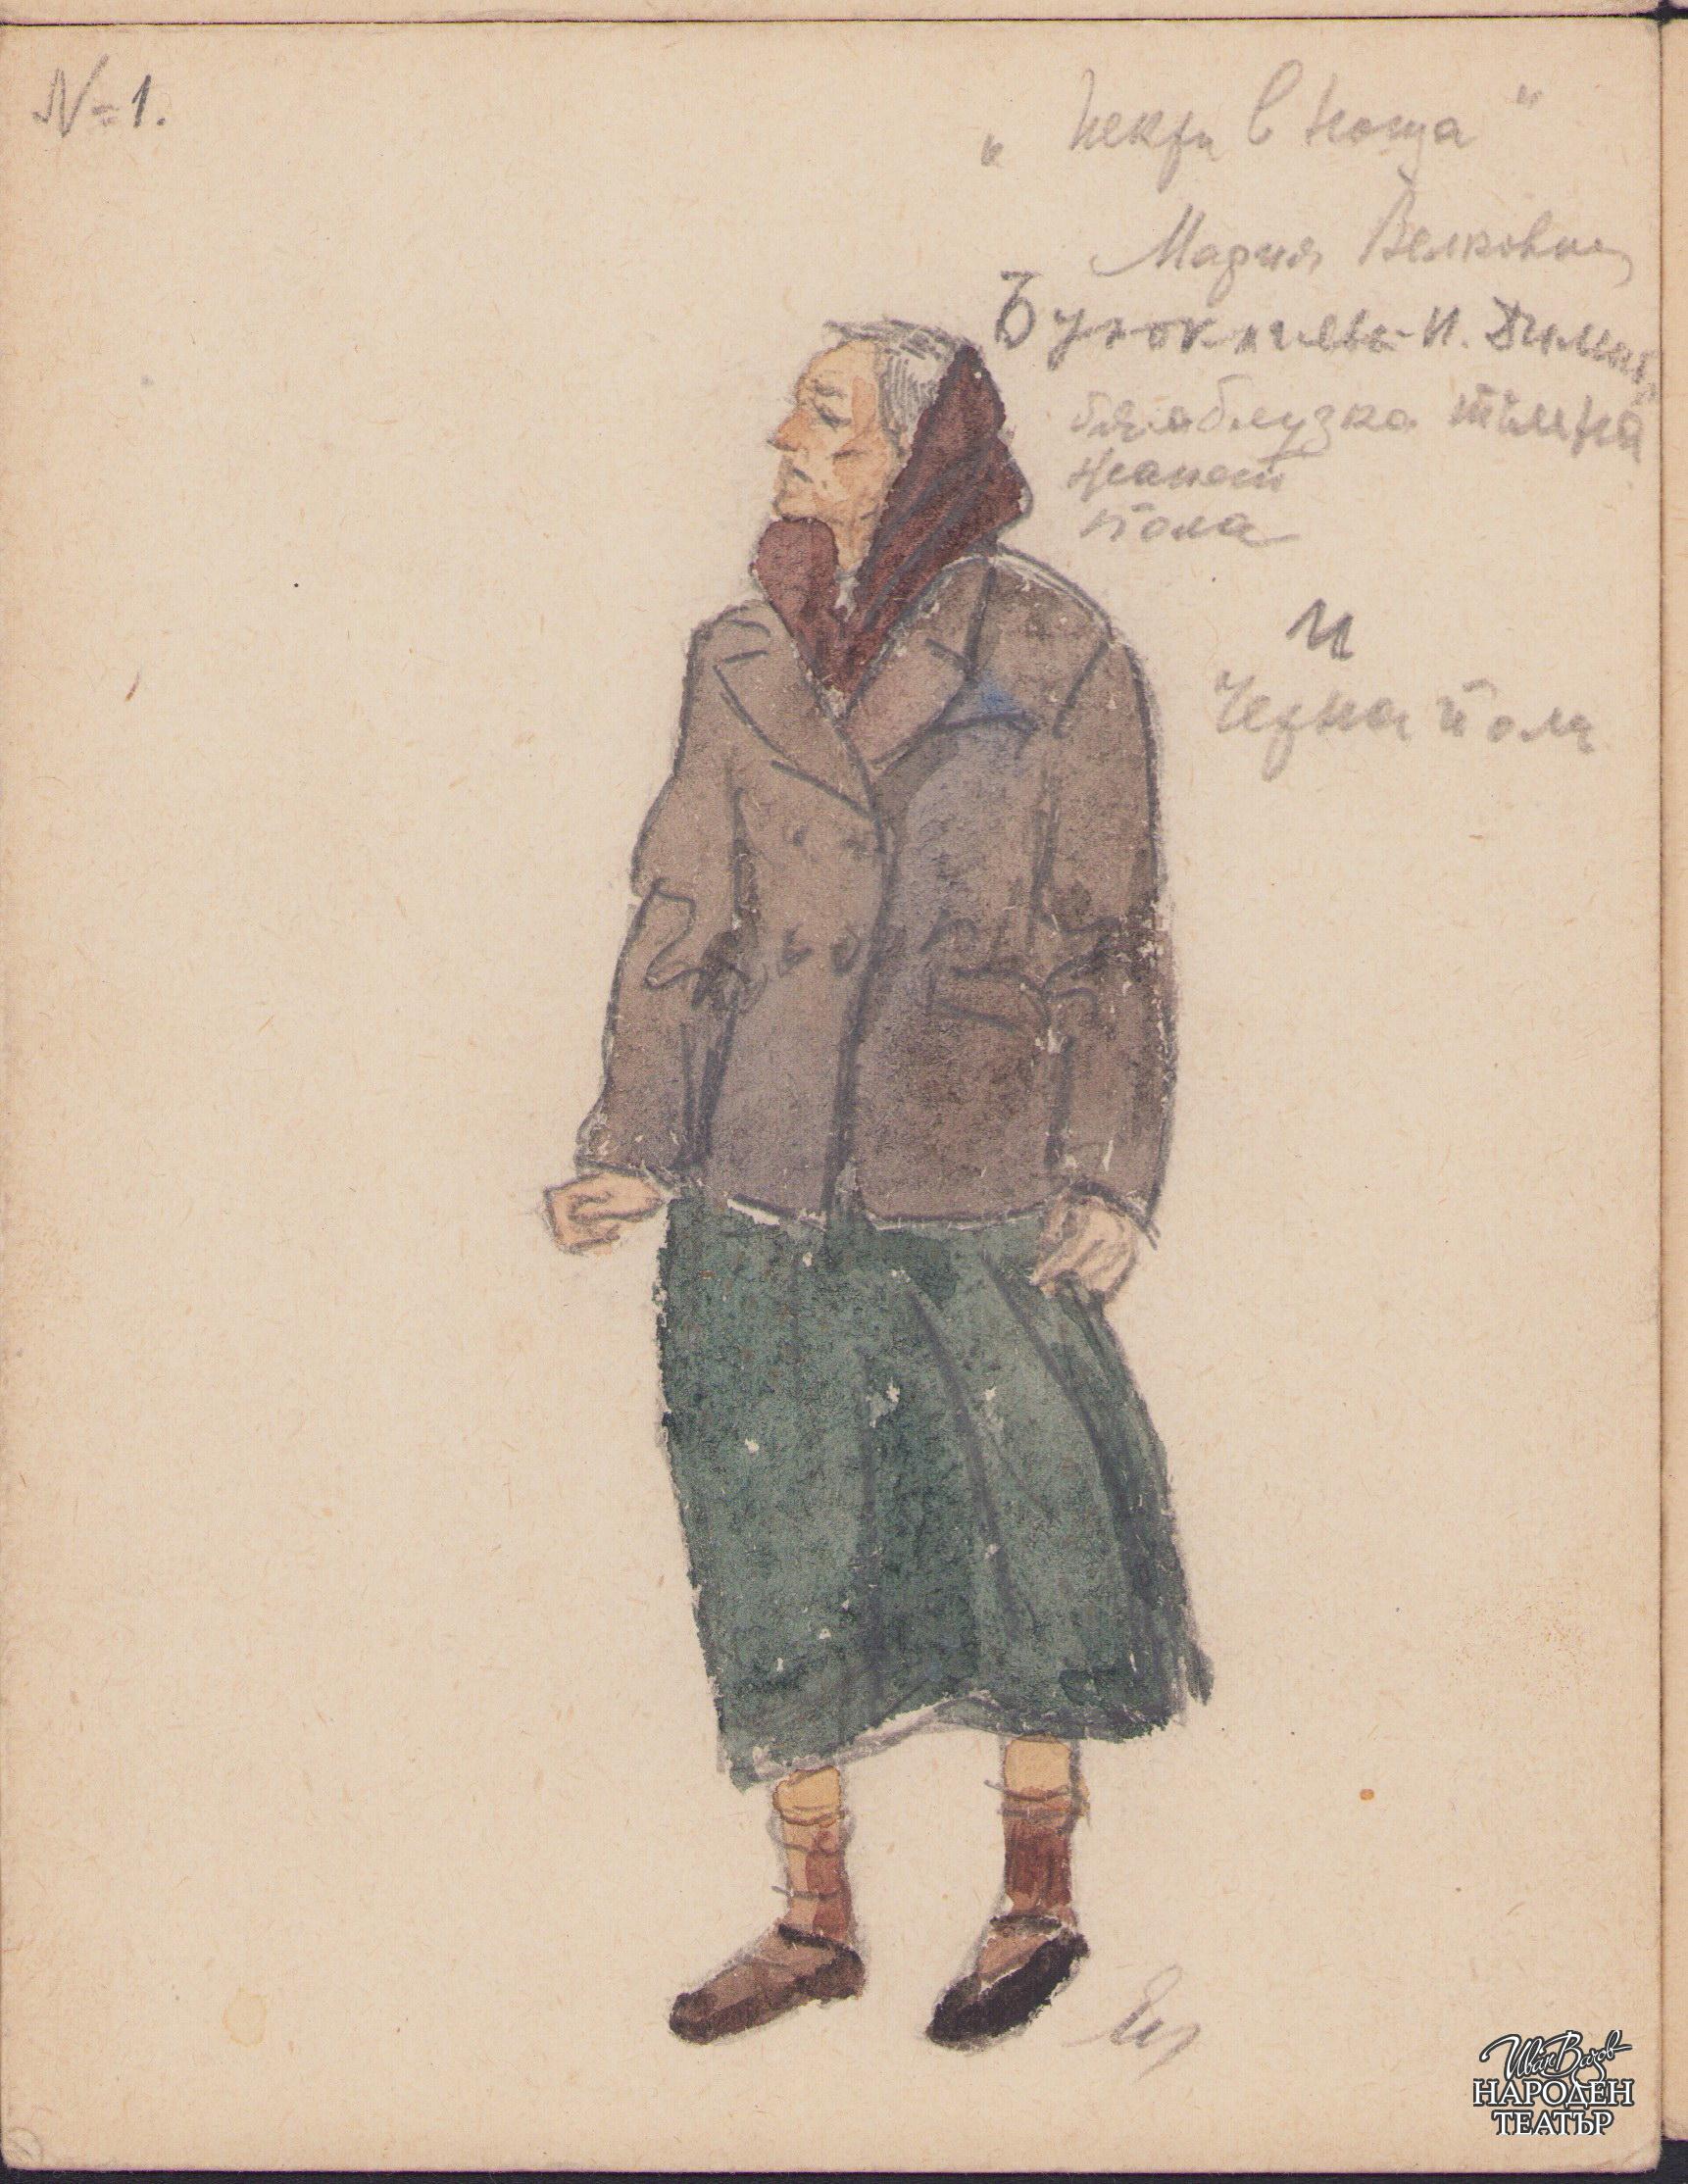 № 1.
„Искри в нощта"
Мария Велковна
Буюклиева - И. Димов
бяла блузка тъмна
жакет
пола
и
Черна пола
Иван Вазов
НАРОДЕН
ТЕАТЪР